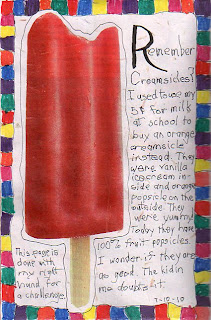 Remember
Creamsicles?
I used to use my
5¢ for milk
at school to
buy an orange
creamsicle
instead. They
were vanilla
icecream in-
side and orange
popsicle on the
outside They
were yummy
Today they have
100% fruit popsicles.
I wonder if they are
as good. The kid in
me doubts it
7-10-10
This page is
done with
my right
hand for
a challenge.